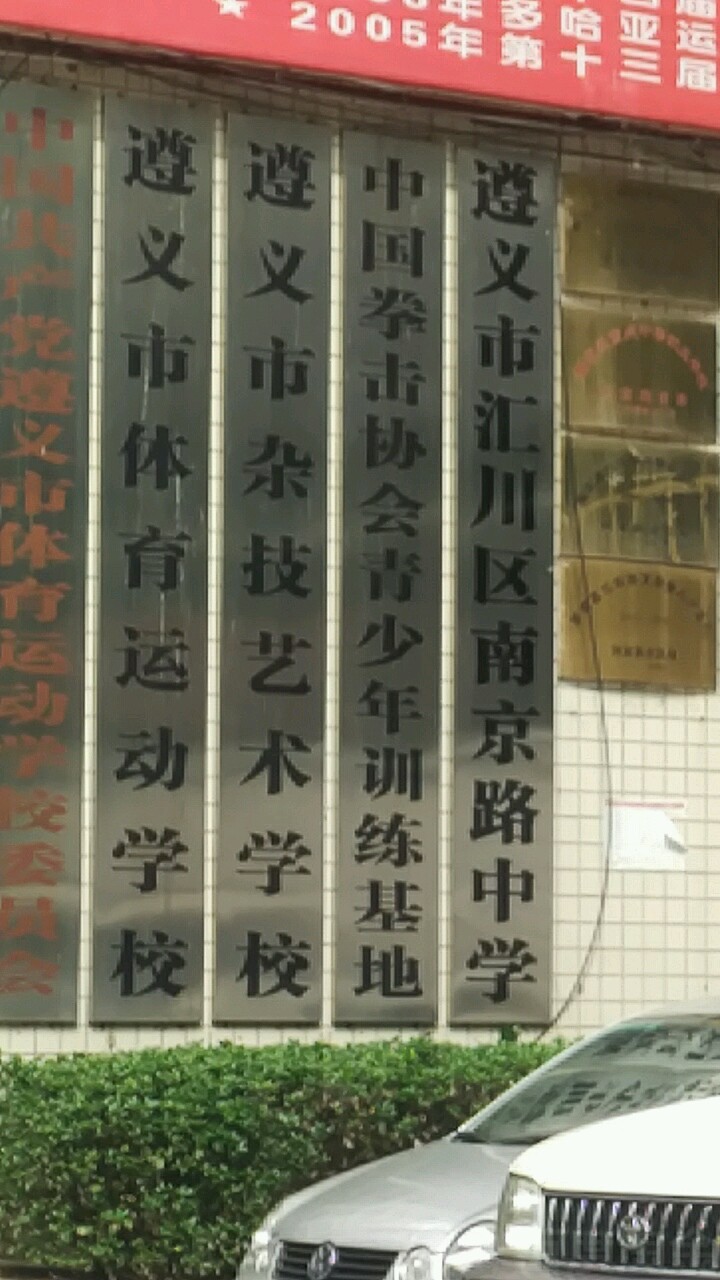 年多哈亚运
★ 2005年第十三届
中国共产党遵义市体育运动学校委员会
遵义市体育运动学校
遵义市杂技艺术学校
中国拳击协会青少年训练基地
遵义市汇川区南京路中学